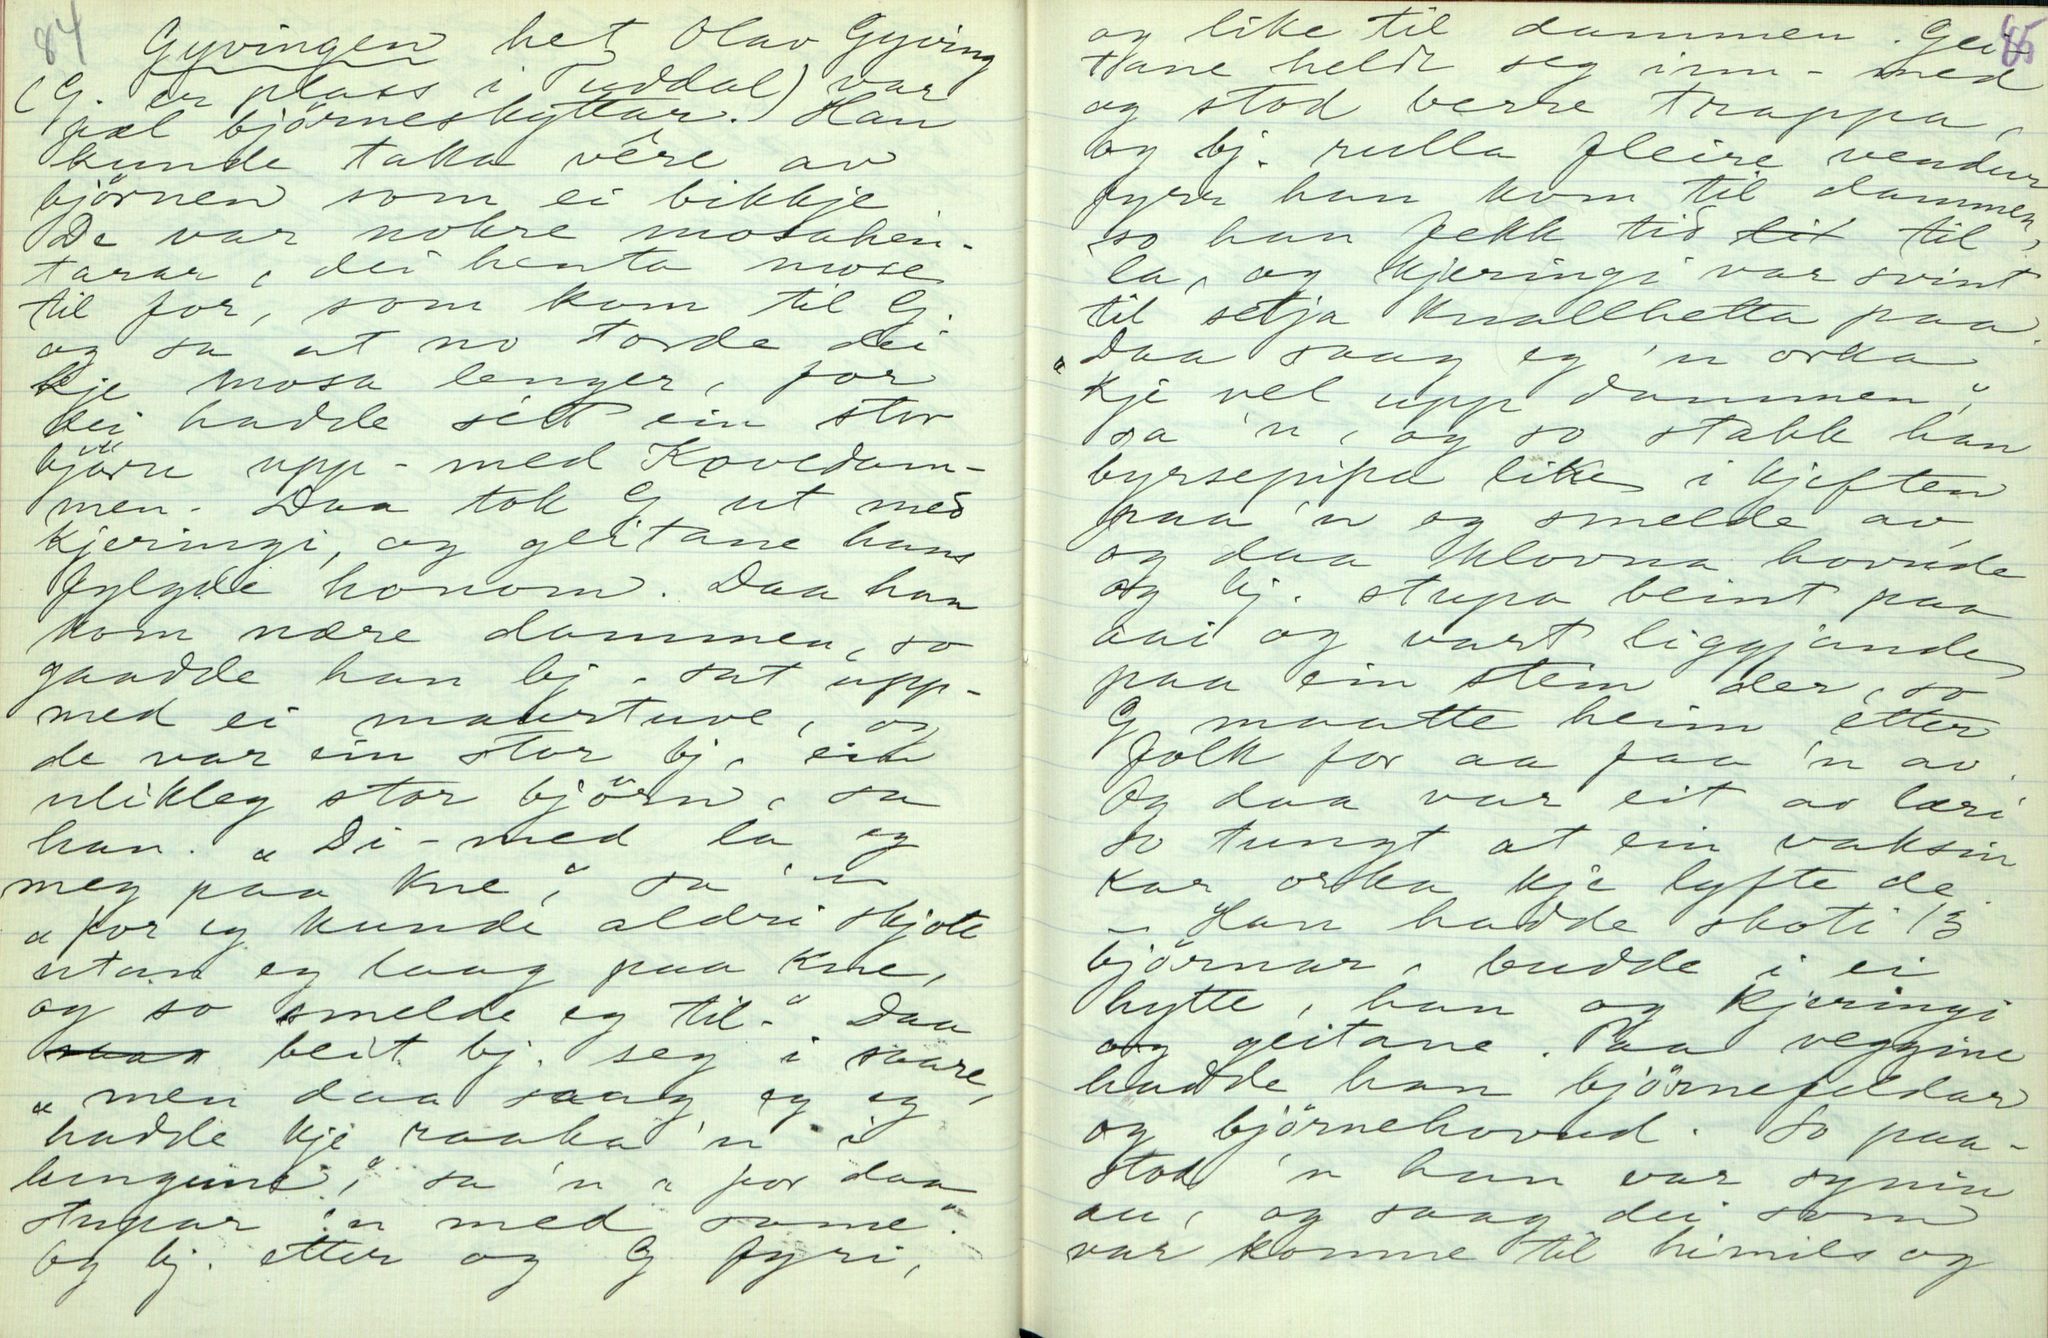 84
Gyvingen het Olav Gyving
(G. er plass i Tuddal) var
gjæl björneskyttar. Han
kunde taka vêre av
björnen som ei bikkje
De var nokre mosahen-
tarar, dei henta mose
til for, som kom til G.
og sa at no torde dei
kje mosa lenger, for
dei hadde sétt ein stor
björn upp-med Kovedam-
men. Daa tok G ut med
kjeringi, og geitane hans
fylgde honom. Daa han
kom nære dammen, so
gaadde han bj. sat upp-
med ei maurtuve, og
de var ein stor bj, ein
ulikleg stor björn, sa
han. "Di-med la eg
meg paa kne", sa 'n
"for eg kunde aldri skjote
utan eg laag paa kne,
og so smelde eg til." Daa
beit bj. seg i saare,
"men daa saag eg eg
hadde kje raaka 'n i
lungune", sa 'n "for daa
stupar 'n med same".
Og bj. etter og G fyri,
85
og like til dammen. Gei-
tane heldt seg inn-med
og stod berre trappa,
og bj. rulla fleire vendur
fyrr han kom til dammen,
so han fekk tid til til
la, og kjeringi var svint
til setja knallhetta paa.
"Daa saag eg 'n orka
kje vel upp dammen",
sa 'n, og so stakk han
byrsepipa like i kjeften
paa 'n og smelde av,
og daa klovna hovude
og bj. stupa beint paa
aai og vart liggjande
paa ein stein der, so
G maatte heim etter
folk for aa faa 'n av.
Og daa var eit av læri
so tungt at ein vaksin
kar orka kje lyfte de.
– Han hadde skoti 13
björnar, budde i ei
hytte, han og kjeringi
og geitane. Paa veggine
hadde han björnefeldar
og björnehovud. So paa-
stod 'n han var synin
au, og saag dei som
var komne til himils og